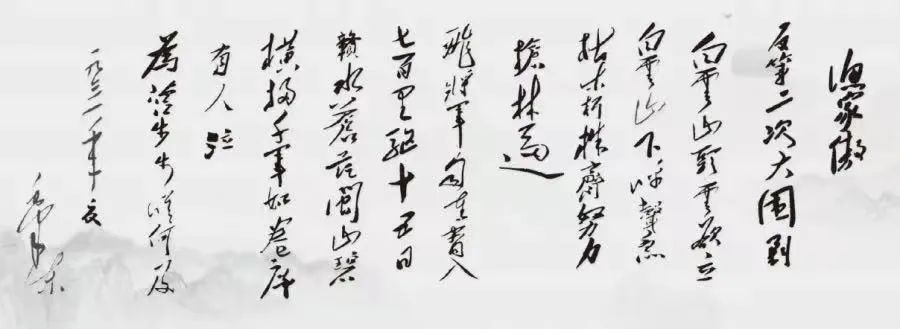 漁家傲
反第二次大围剿
白雲山頭雲欲立
白雲山下呼聲急
枯木朽株齊努力
槍林逼
飛將軍自重霄入
七百里驅十五日
贛水蒼茫閩山碧
橫掃千軍如卷席
有人泣
為營步步嗟何及
一九三一年夏